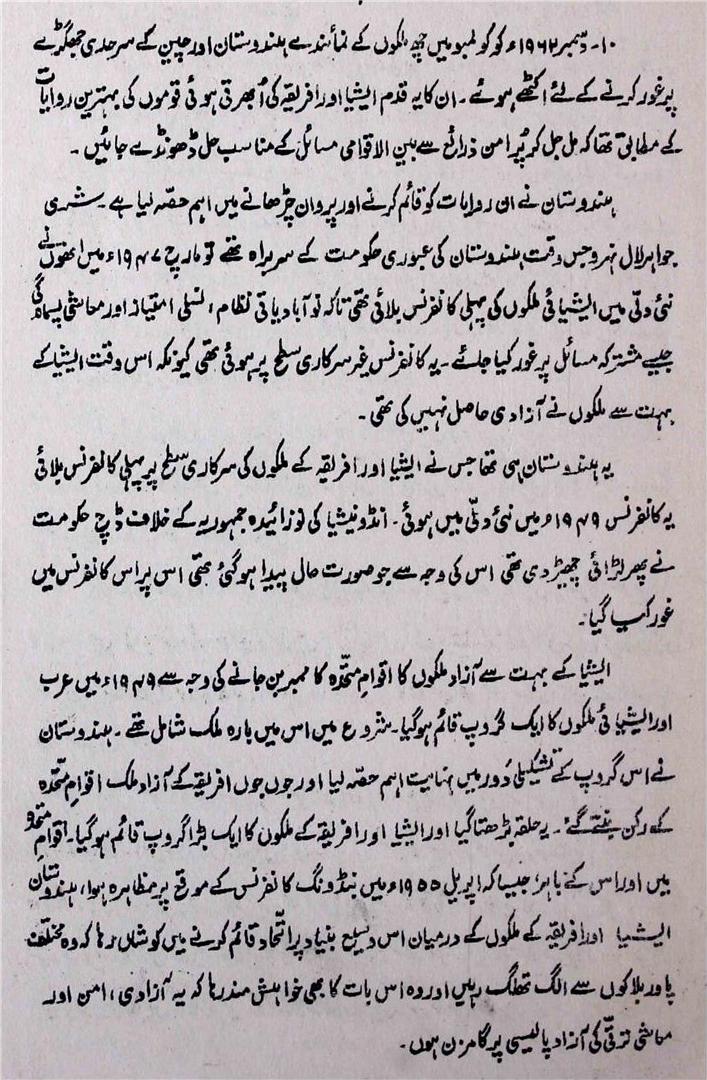 ۱۰۔ دسمبر ۱۹۶۲ء کو کولمبو میں چھ ملکوں کے نمائندے ہندوستان اور چین کے سرحدی جھگڑے
پر غور کرنے کے لئے اکٹھے ہوئے۔ ان کا یہ قدم ایشیا اور افریقہ کی اُبھرتی ہوئی قوموں کی بہترین روایات
کے مطابق تھا کہ مل جل کر پُر امن ذرائع سے بین الاقوامی مسائل کے مناسب حل ڈھونڈے جائیں۔
ہندوستان نے ان روایات کو قائم کرنے اور پروان چڑھانے میں اہم حصّہ لیا ہے۔ شری
جواہر لال نہرو جس وقت ہندوستان کی عبوری حکومت کے سربراہ تھے تو مارچ ۱۹۴۷ء میں انھوں نے
نئی دلّی میں ایشیائی ملکوں کی پہلی کانفرنس بلائی تھی تاکہ نو آبادیاتی نظام، نسلی امتیاز اور معاشی پسماندگی
جیسے مشترکہ مسائل پر غور کیا جائے۔ یہ کانفرنس غیر سرکاری سطح پر ہوئی تھی کیونکہ اس وقت ایشیا کے
بہت سے ملکوں نے آزادی حاصل نہیں کی تھی۔
یہ ہندوستان ہی تھا جس نے ایشیا اور افریقہ کے ملکوں کی سرکاری سطح پر پہلی کانفرنس بلائی
یہ کانفرنس ۱۹۴۹ء میں نئی دلّی میں ہوئی۔ انڈونیشیا کی نوزائیدہ جمہوریہ کے خلاف ڈچ حکومت
نے پھر لڑائی چھیڑ دی تھی اس کی وجہ سے جو صورت حال پیدا ہو گئی تھی اس پر اس کانفرنس میں
غور کیا گیا۔
ایشیا کے بہت سے آزاد ملکوں کا اقوامِ متحّدہ کا ممبر بن جانے کی وجہ سے ۱۹۴۹ء میں عرب
اور ایشیائی ملکوں کا ایک گروپ قائم ہو گیا۔ شروع میں اس میں بارہ ملک شامل تھے۔ ہندوستان
نے اس گروپ کے تشکیلی دَور میں نہایت اہم حصّہ لیا اور جوں جوں افریقہ کے آزاد ملک اقوامِ متحّدہ
کے رکن بنتے گئے۔ یہ حلقہ بڑھتا گیا اور ایشیا اور افریقہ کے ملکوں کا ایک بڑا گروپ قائم ہو گیا۔ اقوامِ متحدہ
میں اور اس کے باہر، جیسا کہ اپریل ۱۹۵۵ء میں بنڈونگ کانفرنس کے موقع پر مظاہرہ ہوا، ہندوستان
ایشیا اور افریقہ کے ملکوں کے درمیان اس وسیع بنیاد پر اتّحاد قائم کرنے میں کوشاں رہا کہ وہ مختلف
پاور بلاکوں سے الگ تھلگ رہیں اور وہ اس بات کا بھی خواہش مند رہا کہ یہ آزادی، امن اور
معاشی ترقّی کی آزاد پالیسی پر گامزن ہوں۔